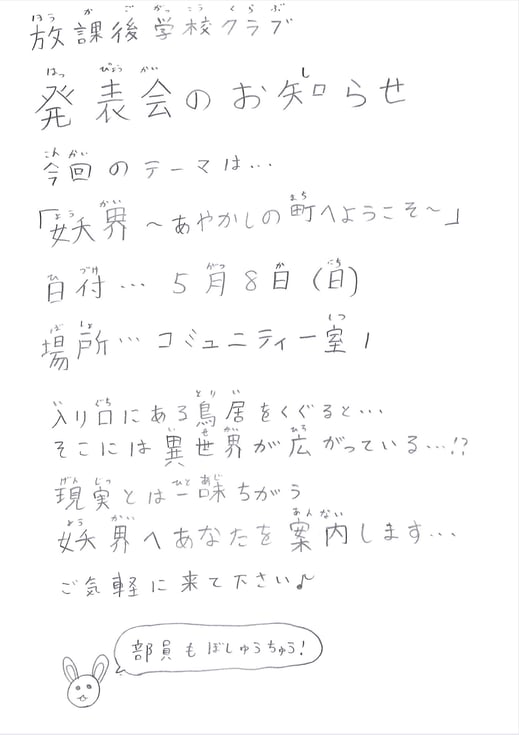 放課後学校クラブ
発表会のお知らせ
今回のテーマは…
「妖界～あやかしの町へようこそ～」
日付…5月8日(日)
場所…コミュニティー室1
入り口にある鳥居をくぐると…
そこには異世界が広がっている…!?
現実とは一味ちがう
妖界へあなたを案内します…
ご気軽に来て下さい♪
部員もぼしゅうちゅう!